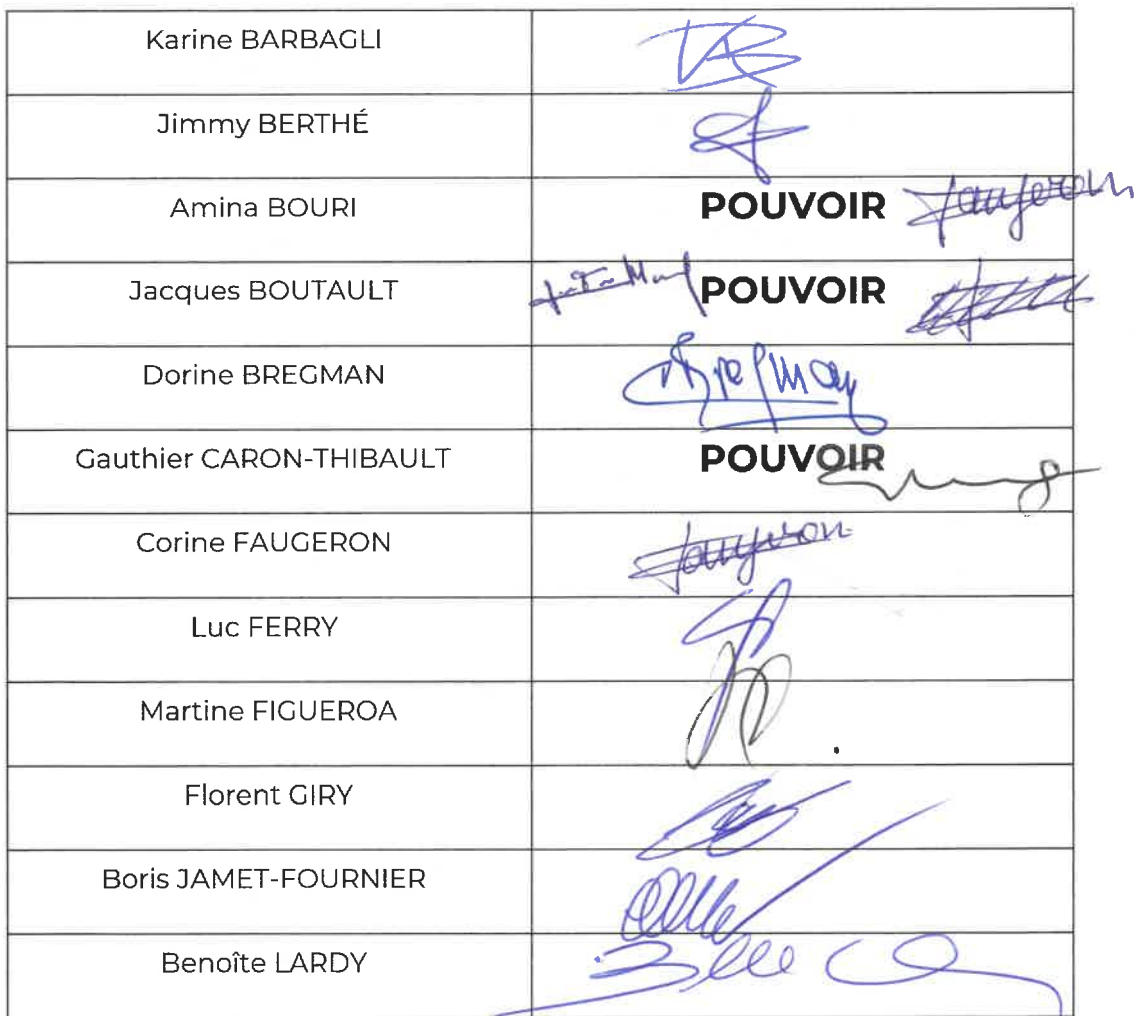 Karine BARBAGLI
Jimmy BERTHÉ
Amina BOURI POUVOIR Faugeron
Jacques BOUTAULT POUVOIR
Dorine BREGMAN DBregman
Gauthier CARON-THIBAULT POUVOIR
Corine FAUGERON Faugeron
Luc FERRY
Martine FIGUEROA
Florent GIRY
Boris JAMET-FOURNIER
Benoîte LARDY